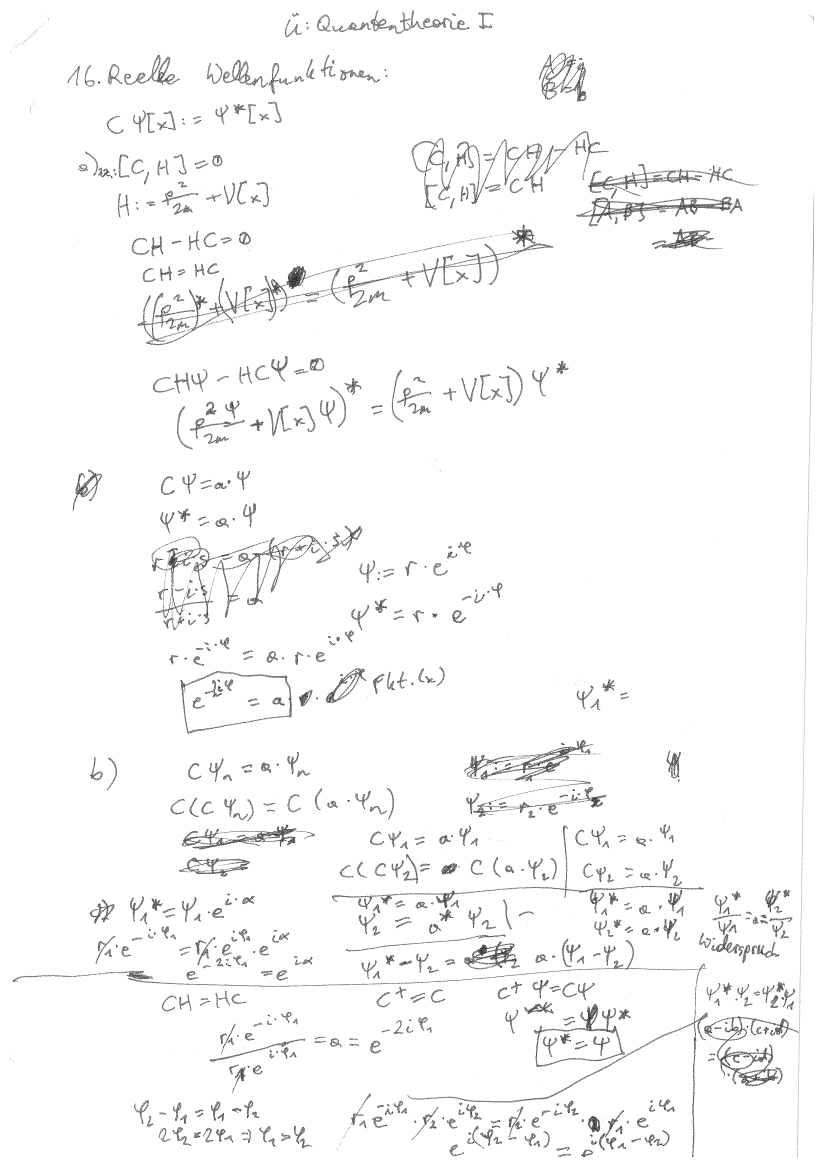 Ü: Quantentheorie I
16. Reelle Wellenfunktionen:
C Ψ[x] := Ψ*[x]
a) zz: [C, H] = 0
H := p²/2m + V[x]
[C, H] = CH - HC
[C, H] = CH
[C, H] = CH - HC
[A, B] = AB - BA
= AB
CH - HC = 0
CH = HC
((p²/2m)* + (V[x])*) = (p²/2m + V[x])*
CHΨ - HCΨ = 0
(p²Ψ/2m + V[x]Ψ)* = (p²/2m + V[x]) Ψ*
CΨ = a·Ψ
Ψ* = a·Ψ
r-i·s = a·(r+i·s)
r-i·s/r+i·s = a
Ψ := r·e^{iφ}
Ψ* = r·e^{-i·φ}
r·e^{-i·φ} = a·r·e^{i·φ}
e^{-2iφ} = a
Fkt.(x)
Ψ₁* =
b) CΨₙ = a·Ψₙ
C(CΨₙ) = C(a·Ψₙ)
Ψ₂ := r₂·e^{-i·φ₂}
CΨ₁ = a·Ψ₁
CΨ₂
CΨ₁ = a·Ψ₁
C(CΨ₂) = C(a·Ψ₂)
CΨ₁ = a·Ψ₁
CΨ₂ = a·Ψ₂
Ψ₁* = Ψ₁·e^{i·α}
r₁·e^{-i·φ₁} = r₁·e^{iφ₁}·e^{iα}
e^{-2iφ₁} = e^{iα}
Ψ₁* = a·Ψ₁
Ψ₂ = a* Ψ₂ | -
Ψ₁* - Ψ₂ = a·(Ψ₁ - Ψ₂)
Ψ₁* = a·Ψ₁
Ψ₂* = a·Ψ₂
Ψ₁*/Ψ₁ = a = Ψ₂*/Ψ₂
Widerspruch
CH = HC
r₁·e^{-iφ₁}/r₁·e^{iφ₁} = a = e^{-2iφ₁}
C⁺ = C
C⁺Ψ = CΨ
Ψ = Ψ*
Ψ* = Ψ
Ψ₁*·Ψ₂ = Ψ₂*·Ψ₁
φ₂ - φ₁ = φ₁ - φ₂
2φ₂ = 2φ₁ ⇒ φ₁ = φ₂
r₁e^{-iφ₁}·r₂·e^{iφ₂} = r₂·e^{-iφ₂}·r₁·e^{iφ₁}
e^{i(φ₂ - φ₁)} = e^{i(φ₁ - φ₂)}